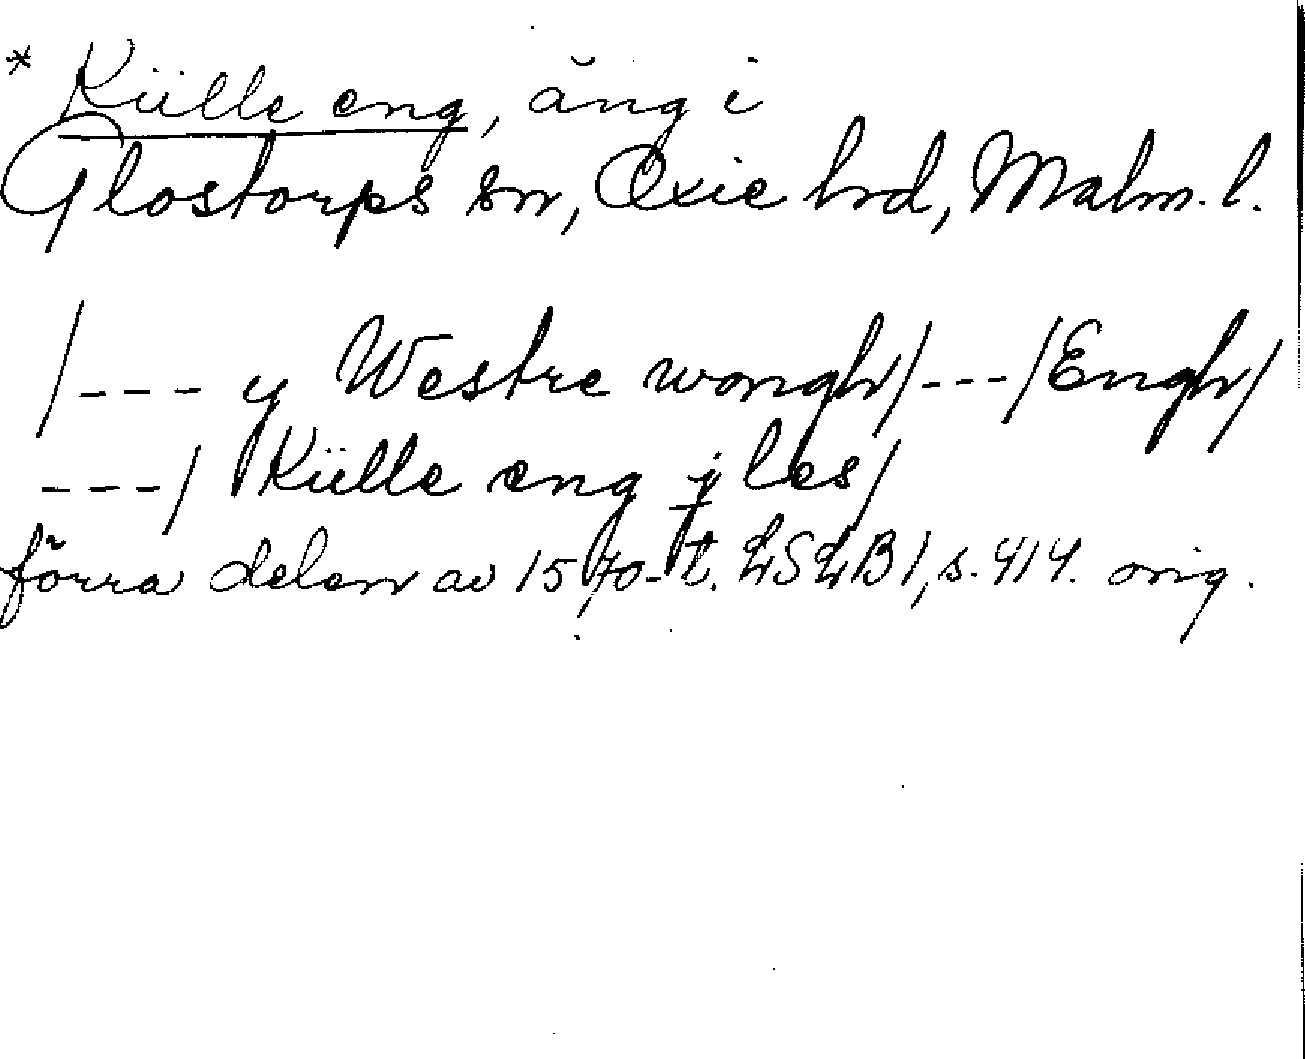 * Külle eng, äng i
Glostorps sn, Oxie hd, Malm. l.
/--- y Westre wongh/---/Engh/
---/ Külle eng j les/
förra delen av 1570-t. LSLB 1, s. 414. orig.